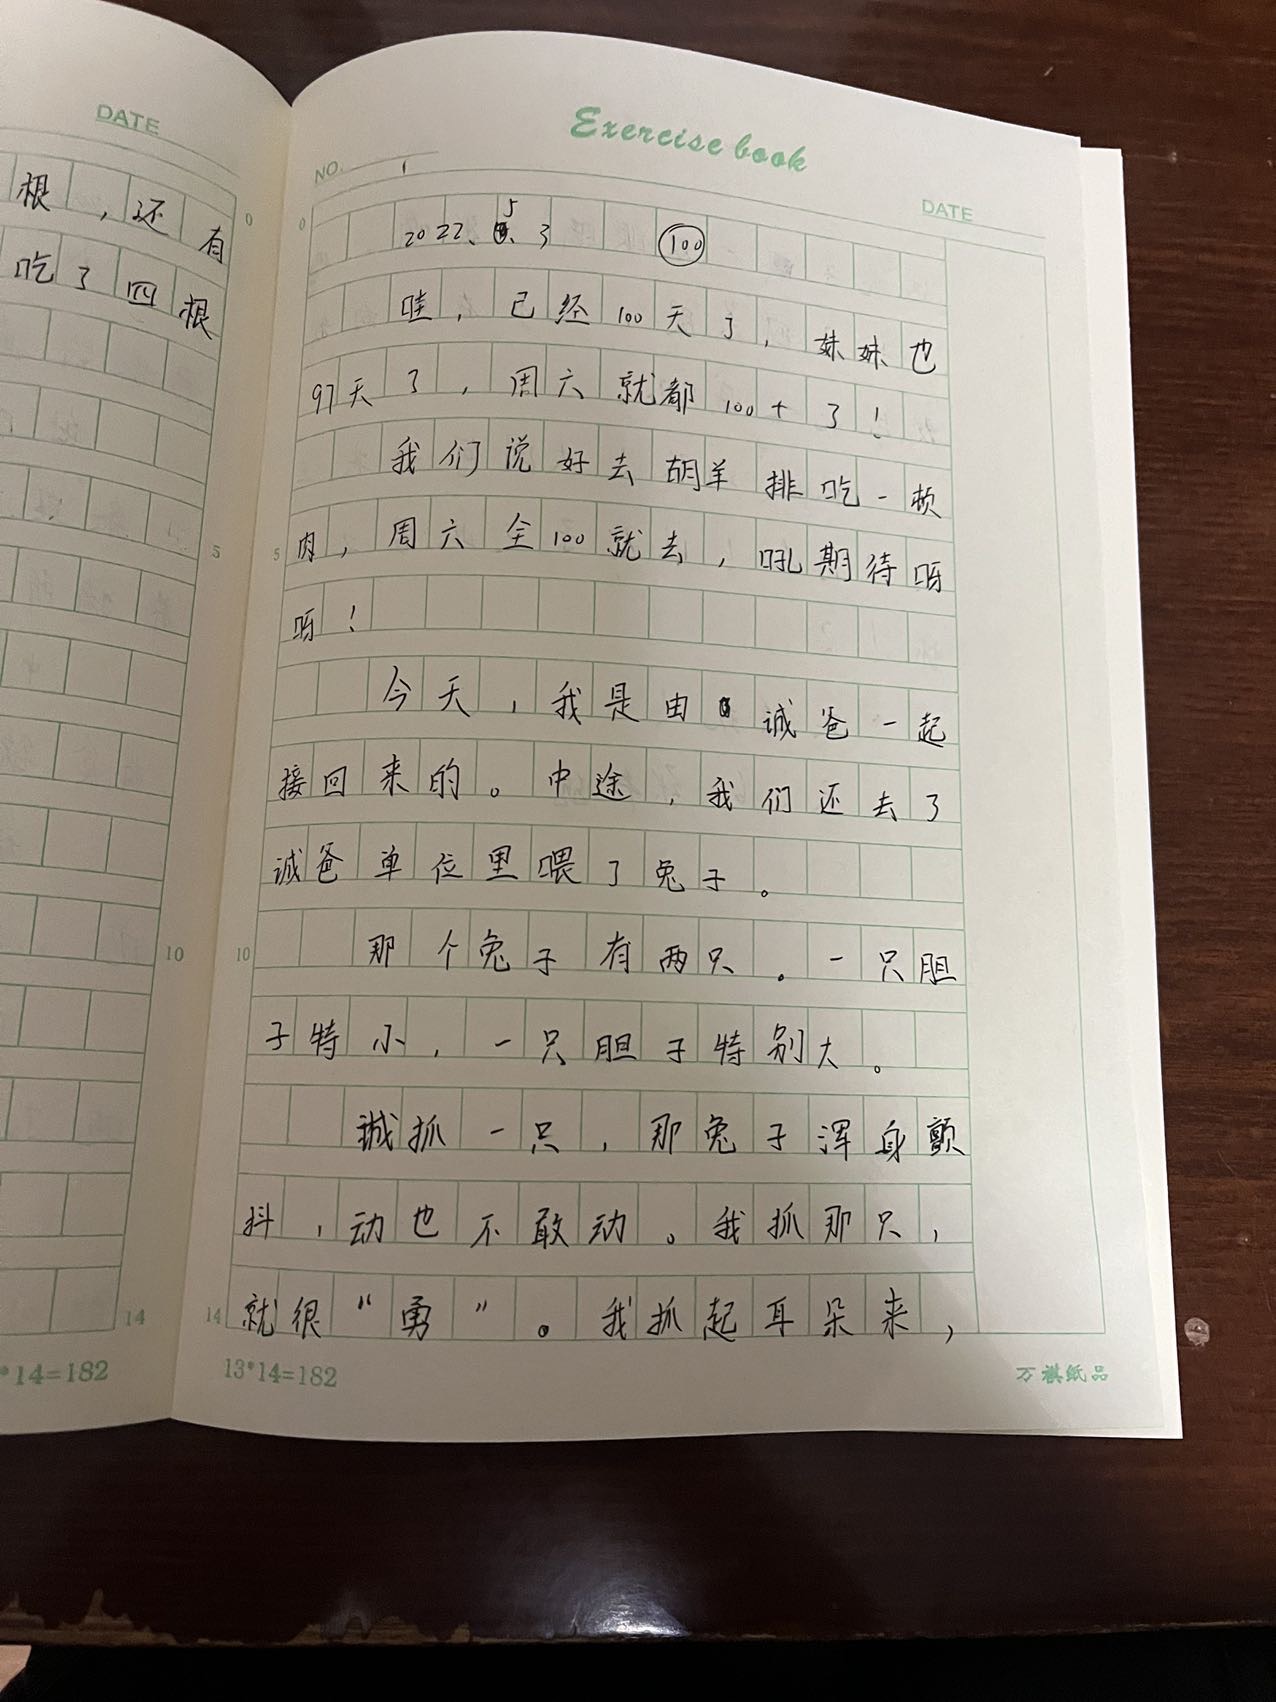 DATE
根，还有
吃了四根
5
10
14
*14=182
Exercise book
NO. 1
DATE
0
2022.5.3 100
哇，已经100天了，妹妹也
97天了，周六就都100+了！
我们说好去胡羊排吃一顿
5
肉，周六全100就去，吼期待呀
呀！
今天，我是由诚爸一起
接回来的。中途，我们还去了
诚爸单位里喂了兔子。
10
那个兔子有两只。一只胆
子特小，一只胆子特别大。
诚抓一只，那兔子浑身颤
抖，动也不敢动。我抓那只，
14
就很“勇”。我抓起耳朵来，
13*14=182
万祺纸品